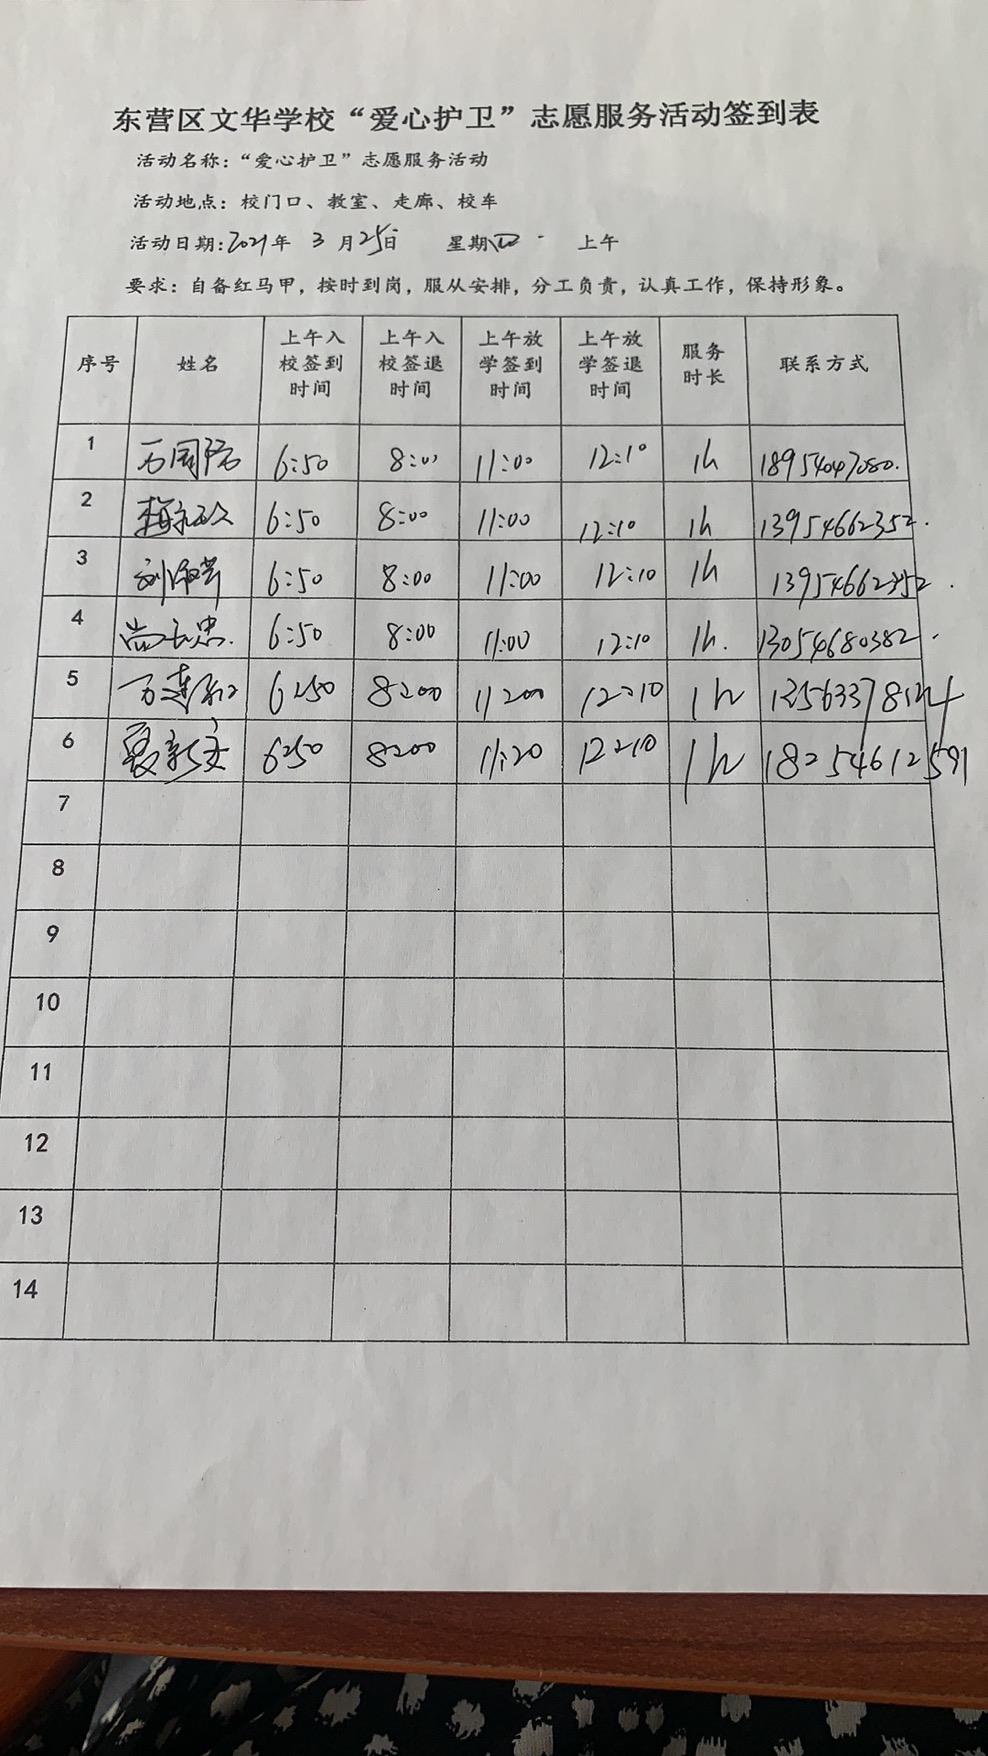 东营区文华学校“爱心护卫”志愿服务活动签到表
活动名称：“爱心护卫”志愿服务活动
活动地点：校门口、教室、走廊、校车
活动日期：2021年 3月25日 星期四 上午
要求：自备红马甲，按时到岗，服从安排，分工负责，认真工作，保持形象。
序号 姓名 上午入校签到时间 上午入校签退时间 上午放学签到时间 上午放学签退时间 服务时长 联系方式
1 6:50 8:00 11:00 12:10 1h 18954047080.
2 6:50 8:00 11:00 12:10 1h 13954662352.
3 6:50 8:00 11:00 12:10 1h 13954662352.
4 尚玉忠. 6:50 8:00 11:00 12:10 1h. 13054680382.
5 6:50 8:00 11:00 12:10 1h
6 夏新文 6:50 8:00 11:20 12:10 1h 18254612591
7
8
9
10
11
12
13
14